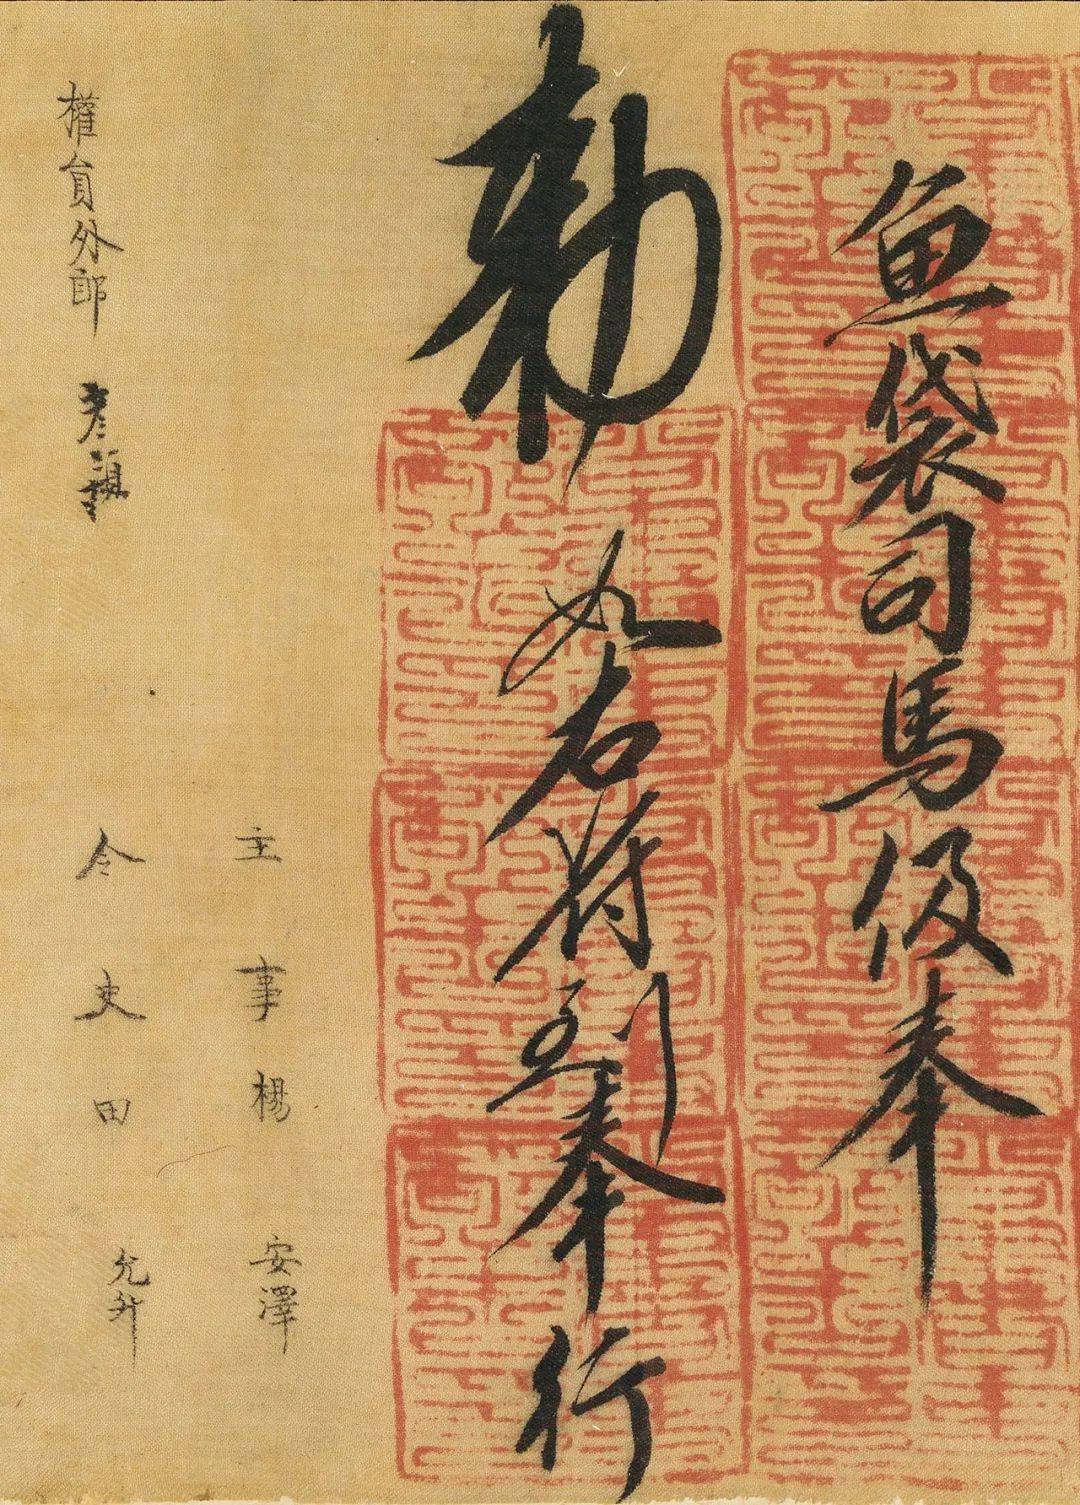 魚袋司馬伋奉
勅如右符到奉行
主事楊安澤
令史田允升
權員外郎彦